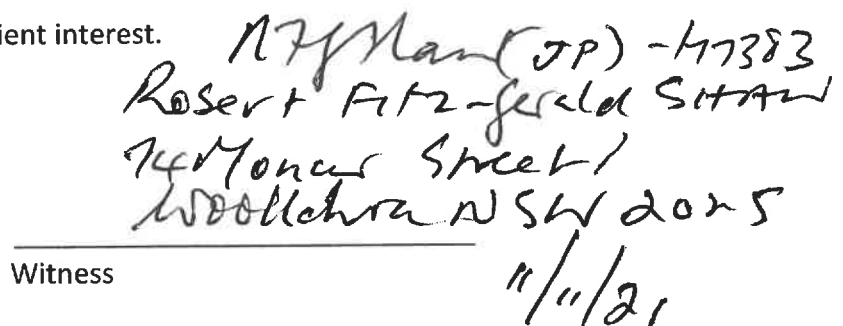 ient interest.
(JP) - 147383
Robert Fitz-Gerald SHAW
74 Moncur Street,
Woollahra NSW 2025
Witness
11/11/21